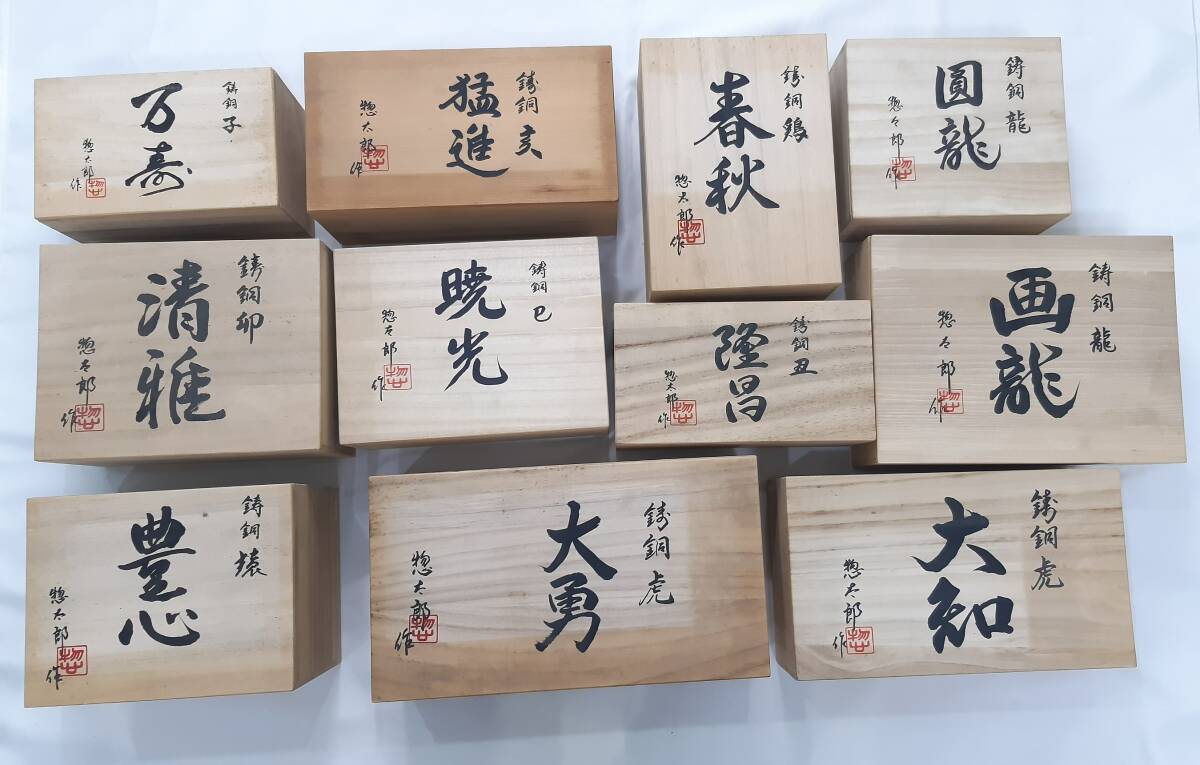 鋳銅 子
万寿
惣太郎
作
惣
鋳銅 亥
猛進
惣太郎
作
惣
鋳銅 鶏
春秋
惣太郎
作
惣
鋳銅 龍
圓龍
惣太郎
作
惣
鋳銅 卯
清雅
惣太郎
作
惣
鋳銅 巳
暁光
惣太郎
作
惣
鋳銅 丑
隆昌
惣太郎
作
惣
鋳銅 龍
画龍
惣太郎
作
惣
鋳銅 猿
豊心
惣太郎
作
惣
鋳銅 虎
大勇
惣太郎
作
惣
鋳銅 虎
大知
惣太郎
作
惣